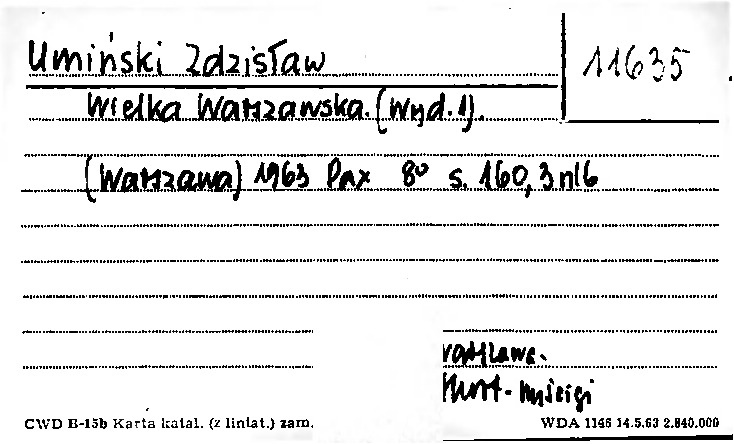 Umiński Zdzisław
11635
Wielka Warszawska. (Wyd. 1).
(Warszawa) 1963 Pax 8º s. 160, 3 nlb
Sport - wyścigi
CWD B-15b Karta katal. (z liniat.) zam.
WDA 1146 14.5.63 2.840.000